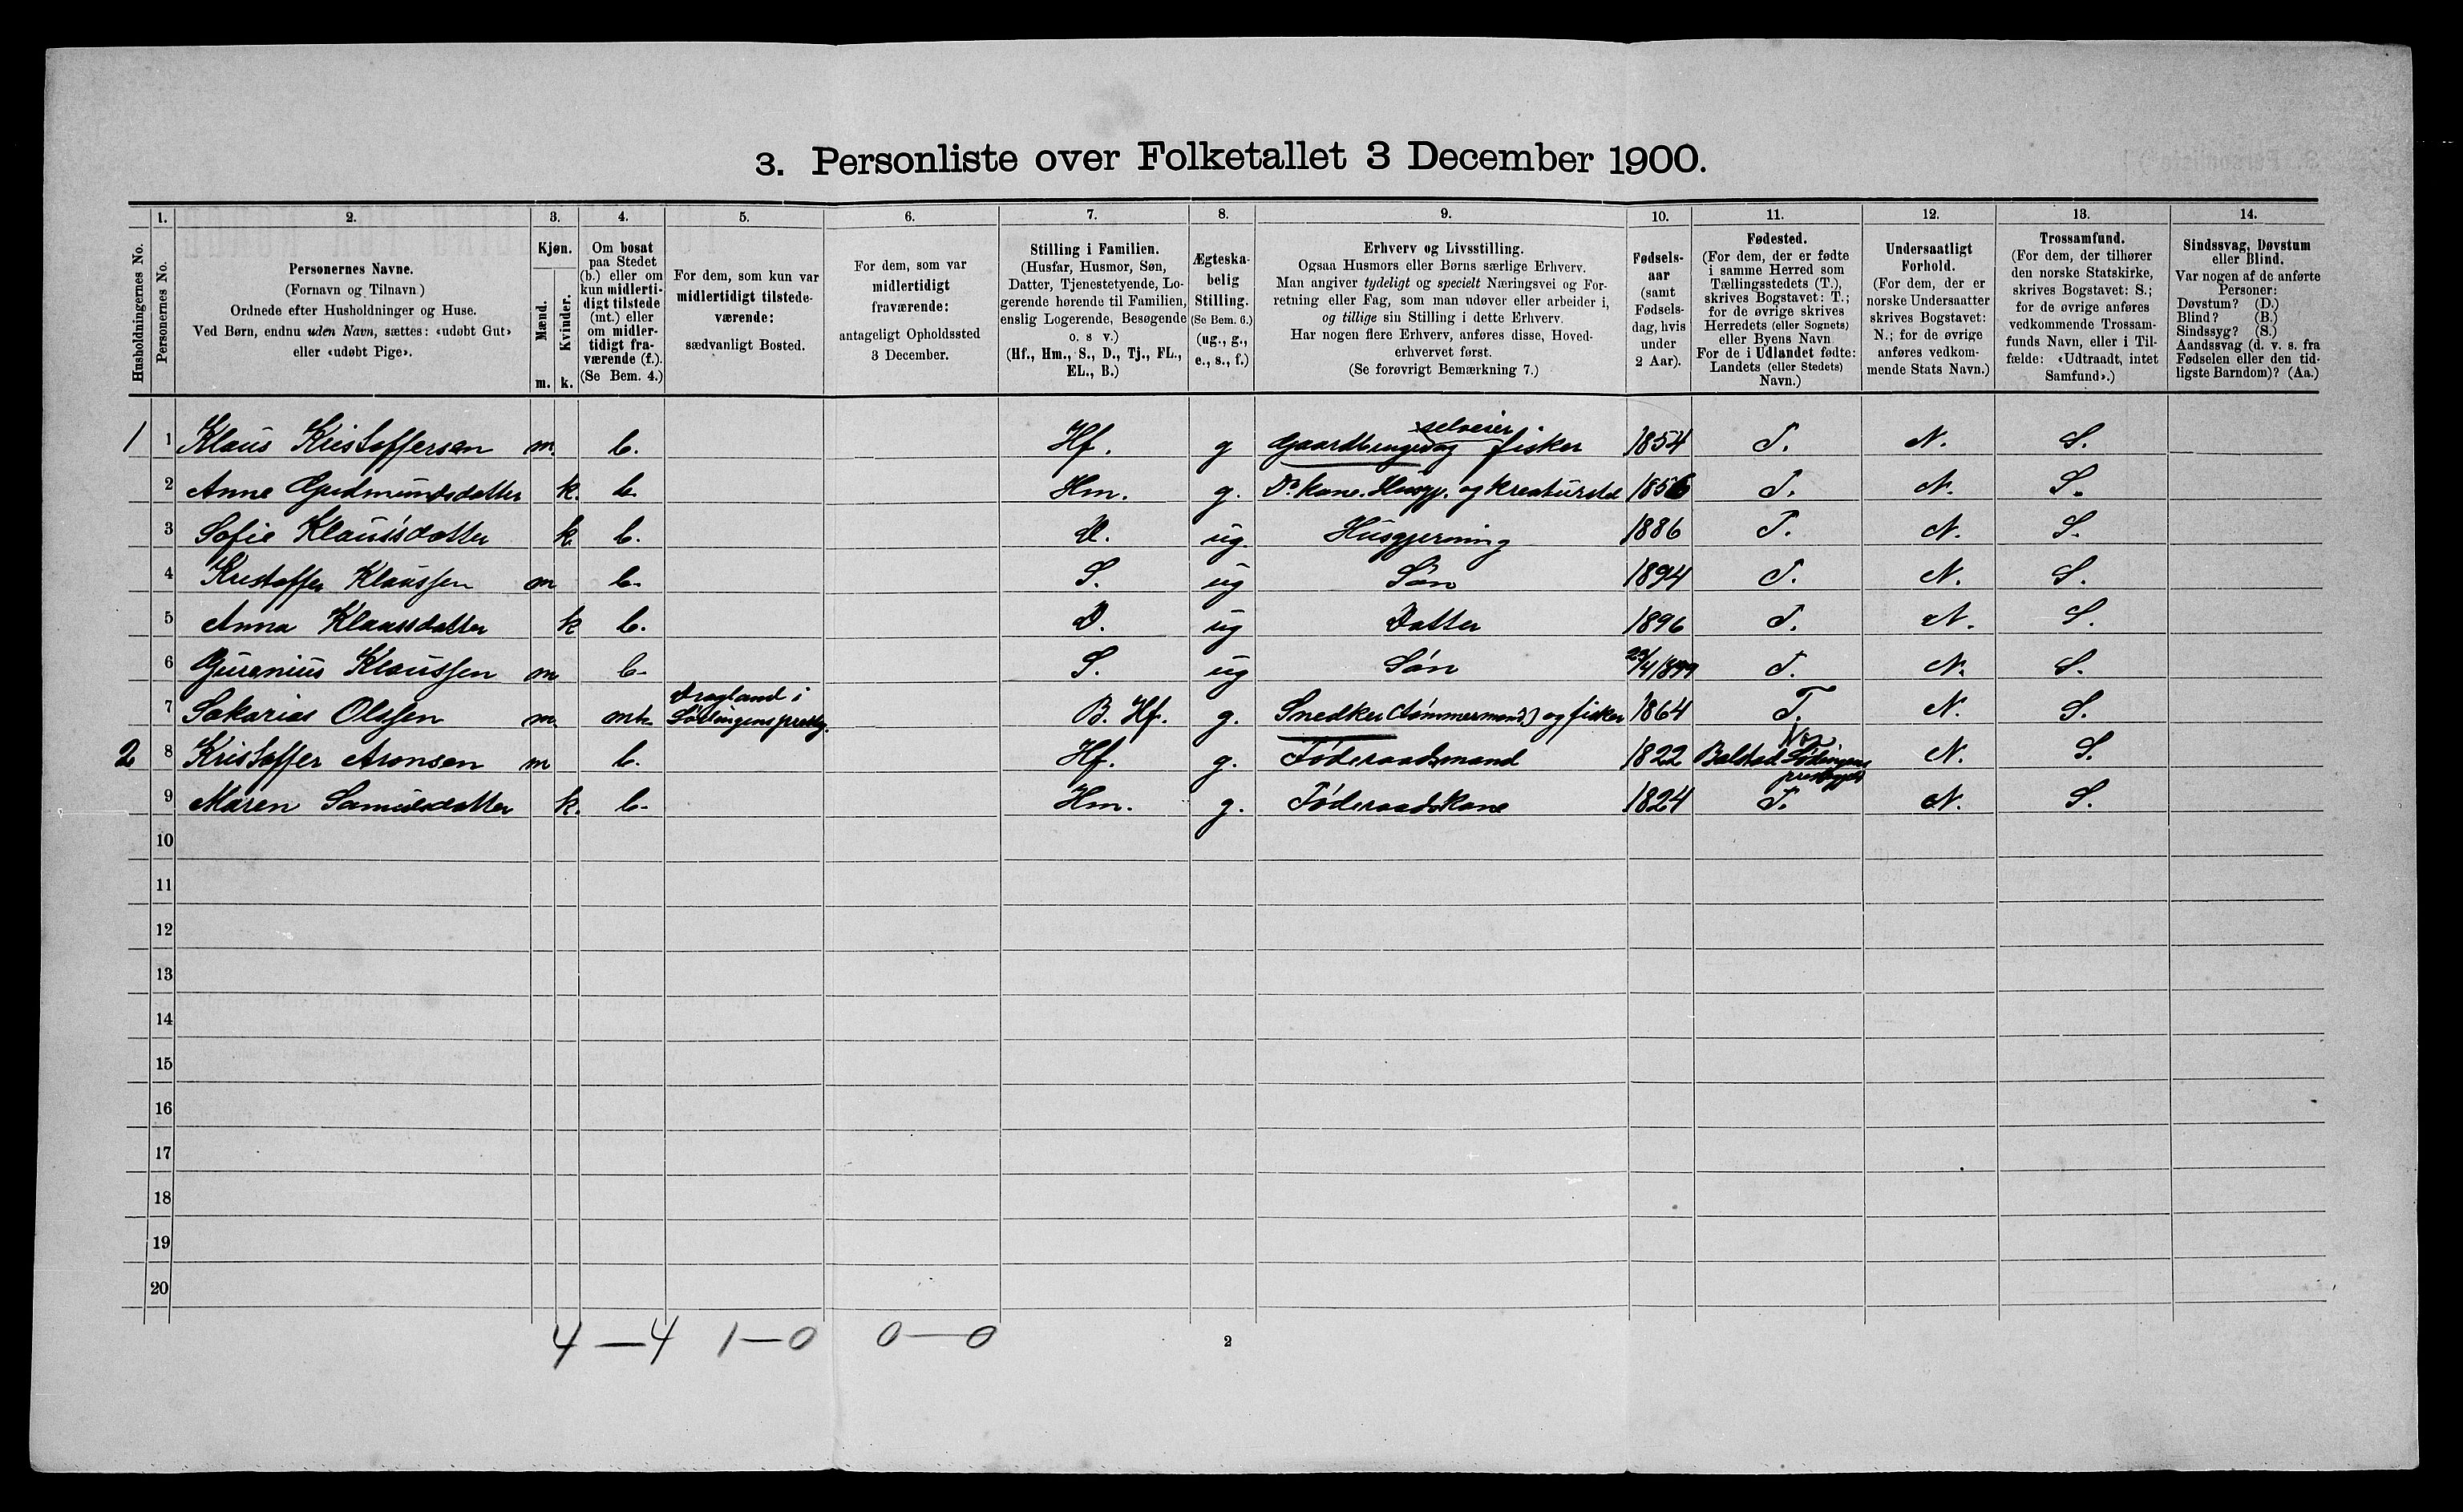 3. Personliste over Folketallet 3 December 1900.
1. 2. 3. 4. 5. 6. 7. 8. 9. 10. 11. 12. 13. 14.
Husholdningernes No.
Personernes No.
Personernes Navne.
(Fornavn og Tilnavn)
Ordnede efter Husholdninger og Huse.
Ved Børn, endnu uden Navn, sættes: «udøbt Gut»
eller «udøbt Pige».
Kjøn.
Mænd.
Kvinder.
m. k.
Om bosat
paa Stedet
(b.) eller om
kun midlerti-
digt tilstede
(mt.) eller
om midler-
tidigt fra-
værende (f.).
(Se Bem. 4.)
For dem, som kun var
midlertidigt tilstede-
værende:
sædvanligt Bosted.
For dem, som var
midlertidigt
fraværende:
antageligt Opholdssted
3 December.
Stilling i Familien.
(Husfar, Husmor, Søn,
Datter, Tjenestetyende, Lo-
gerende hørende til Familien,
enslig Logerende, Besøgende
o. s v.)
(Hf., Hm., S., D., Tj., FL.,
EL., B.)
Ægteska-
belig
Stilling.
(Se Bem. 6.)
(ug., g.,
e., s., f.)
Erhverv og Livsstilling.
Ogsaa Husmors eller Børns særlige Erhverv.
Man angiver tydeligt og specielt Næringsvei og For-
retning eller Fag, som man udøver eller arbeider i,
og tillige sin Stilling i dette Erhverv.
Har nogen flere Erhverv, anføres disse, Hoved-
erhvervet først.
(Se forøvrigt Bemærkning 7.)
Fødsels-
aar
(samt
Fødsels-
dag, hvis
under
2 Aar).
Fødested.
(For dem, der er fødte
i samme Herred som
Tællingsstedets (T.),
skrives Bogstavet: T.;
for de øvrige skrives
Herredets (eller Sognets)
eller Byens Navn
For de i Udlandet fødte:
Landets (eller Stedets)
Navn.)
Undersaatligt
Forhold.
(For dem, der er
norske Undersaatter
skrives Bogstavet:
N.; for de øvrige
anføres vedkom-
mende Stats Navn.)
Trossamfund.
(For dem, der tilhører
den norske Statskirke,
skrives Bogstavet: S.;
for de øvrige anføres
vedkommende Trossam-
funds Navn, eller i Til-
fælde: «Udtraadt, intet
Samfund».)
Sindssvag, Døvstum
eller Blind.
Var nogen af de anførte
Personer:
Døvstum? (D.)
Blind? (B.)
Sindssyg? (S.)
Aandssvag (d. v. s. fra
Fødselen eller den tid-
ligste Barndom)? (Aa.)
selveier
1 1 Klaus Kristoffersen m. b. Hf. g Gaardbruger og fisker 1854 T. N. S.
2 Anne Gudmundsdatter k. b. Hm. g. Do kone. Husgj. og kreaturstel 1856 T. N. S.
3 Sofie Klausdatter k b. D. ug. Husgjerning 1886 T. N. S.
4 Kristoffer Klaussen m b. S. ug Søn 1894 T. N. S.
5 Anna Klausdatter k b. D. ug Datter 1896 T. N. S.
6 Klaussen m b. S. ug Søn 1899 T. N. S.
Dragland i
7 Sakarias Olssen m. mt. Lødingens prestg. B. Hf. g. Snedker (tømmermand) og fisker 1864 T. N. S.
2 8 Kristoffer Aronsen m b. Hf. g. Føderaadsmand 1822 Balstad Lødingens N. S.
prestegjeld
9 Maren Samuelsdatter k. b. Hm. g. Føderaadskone 1824 T. N. S.
10
11
12
13
14
15
16
17
18
19
20
4—4 1—0 0—0
2